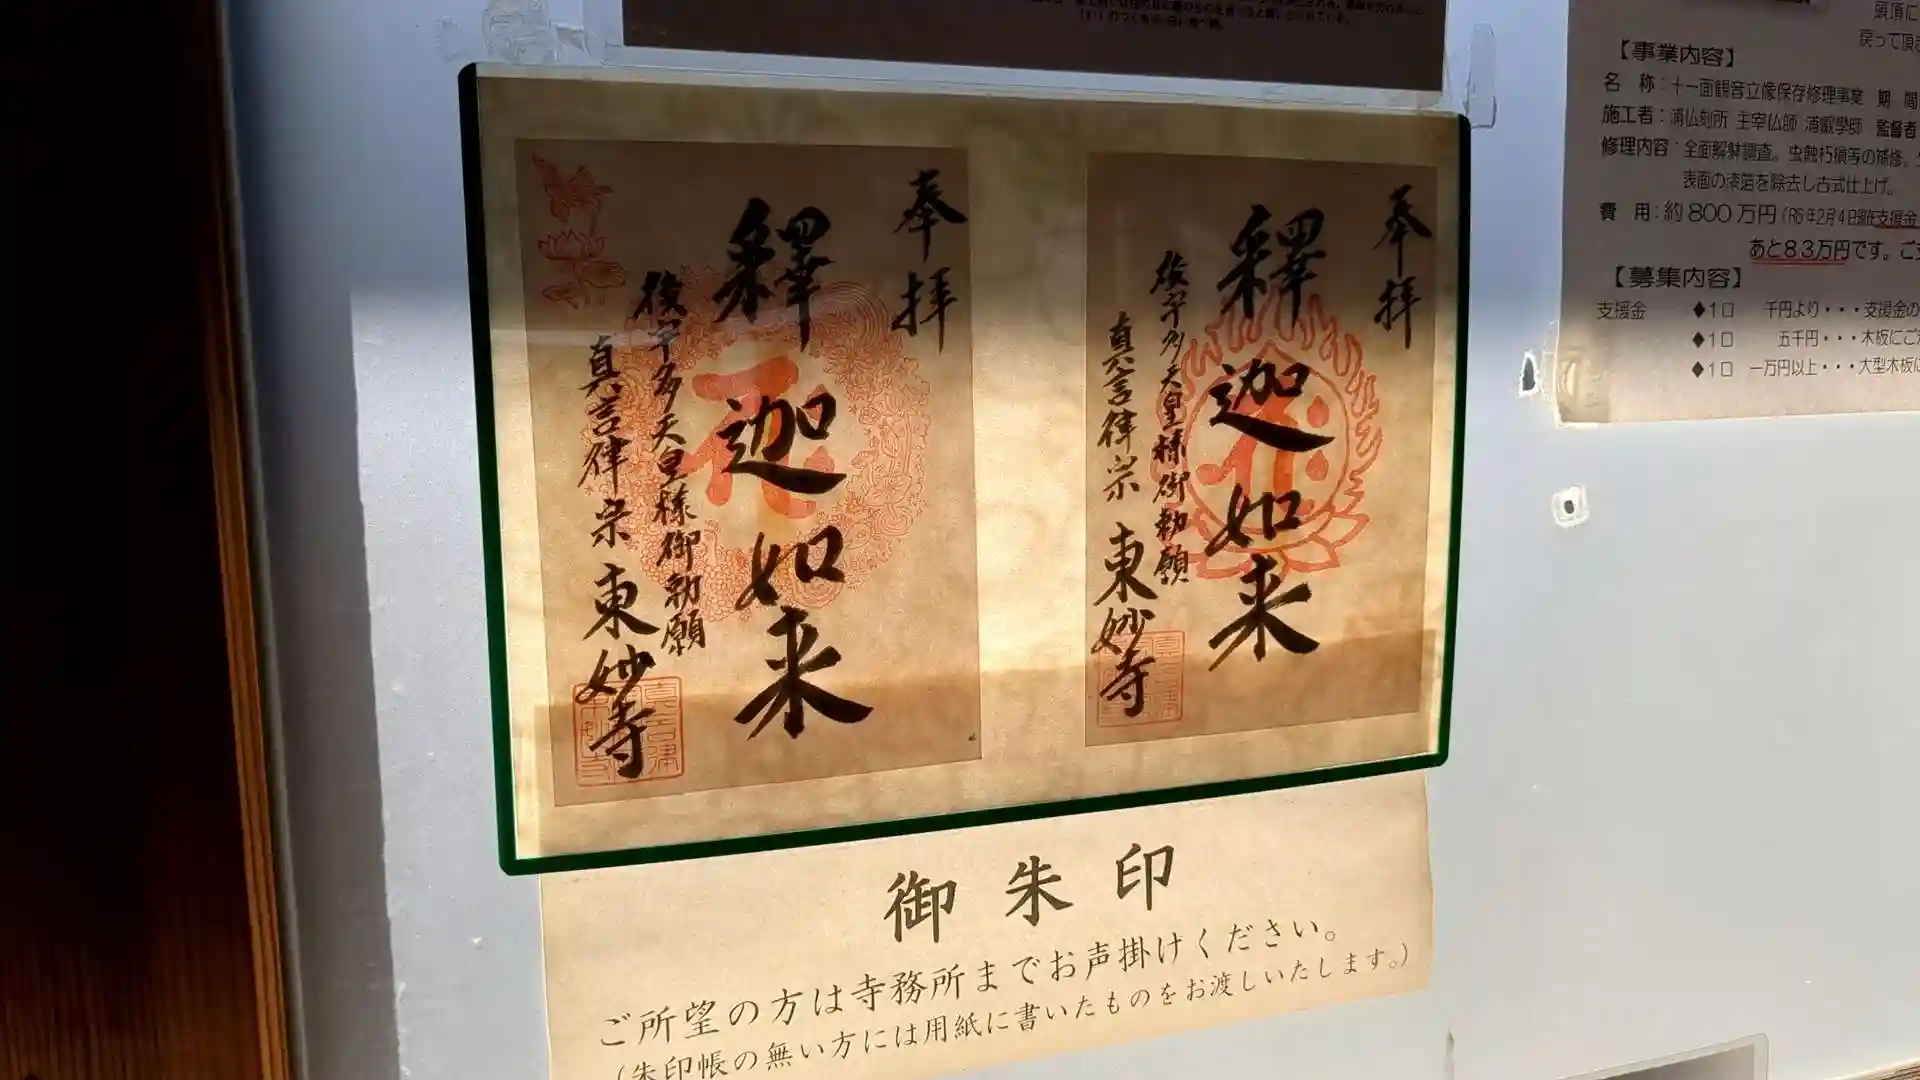 奉拝
釋迦如来
後宇多天皇様御勅願
真言律宗 東妙寺
奉拝
釋迦如来
後宇多天皇様御勅願
真言律宗 東妙寺
御朱印
ご所望の方は寺務所までお声掛けください。
(朱印帳の無い方には用紙に書いたものをお渡しいたします。)
頭頂に
戻って頂
【事業内容】
名 称:十一面観音立像保存修理事業 期 間
施工者:浦仏刻所 主宰仏師 浦叡學師 監督者
修理内容:全面解躰調査。虫蝕朽損等の補修。
表面の漆箔を除去し古式仕上げ。
費 用:約800万円(R6年2月4日現在支援金
あと83万円です。ご
【募集内容】
支援金 ◆1口 千円より・・・支援金の
◆1口 五千円・・・木板にご
◆1口 一万円以上・・・大型木板に